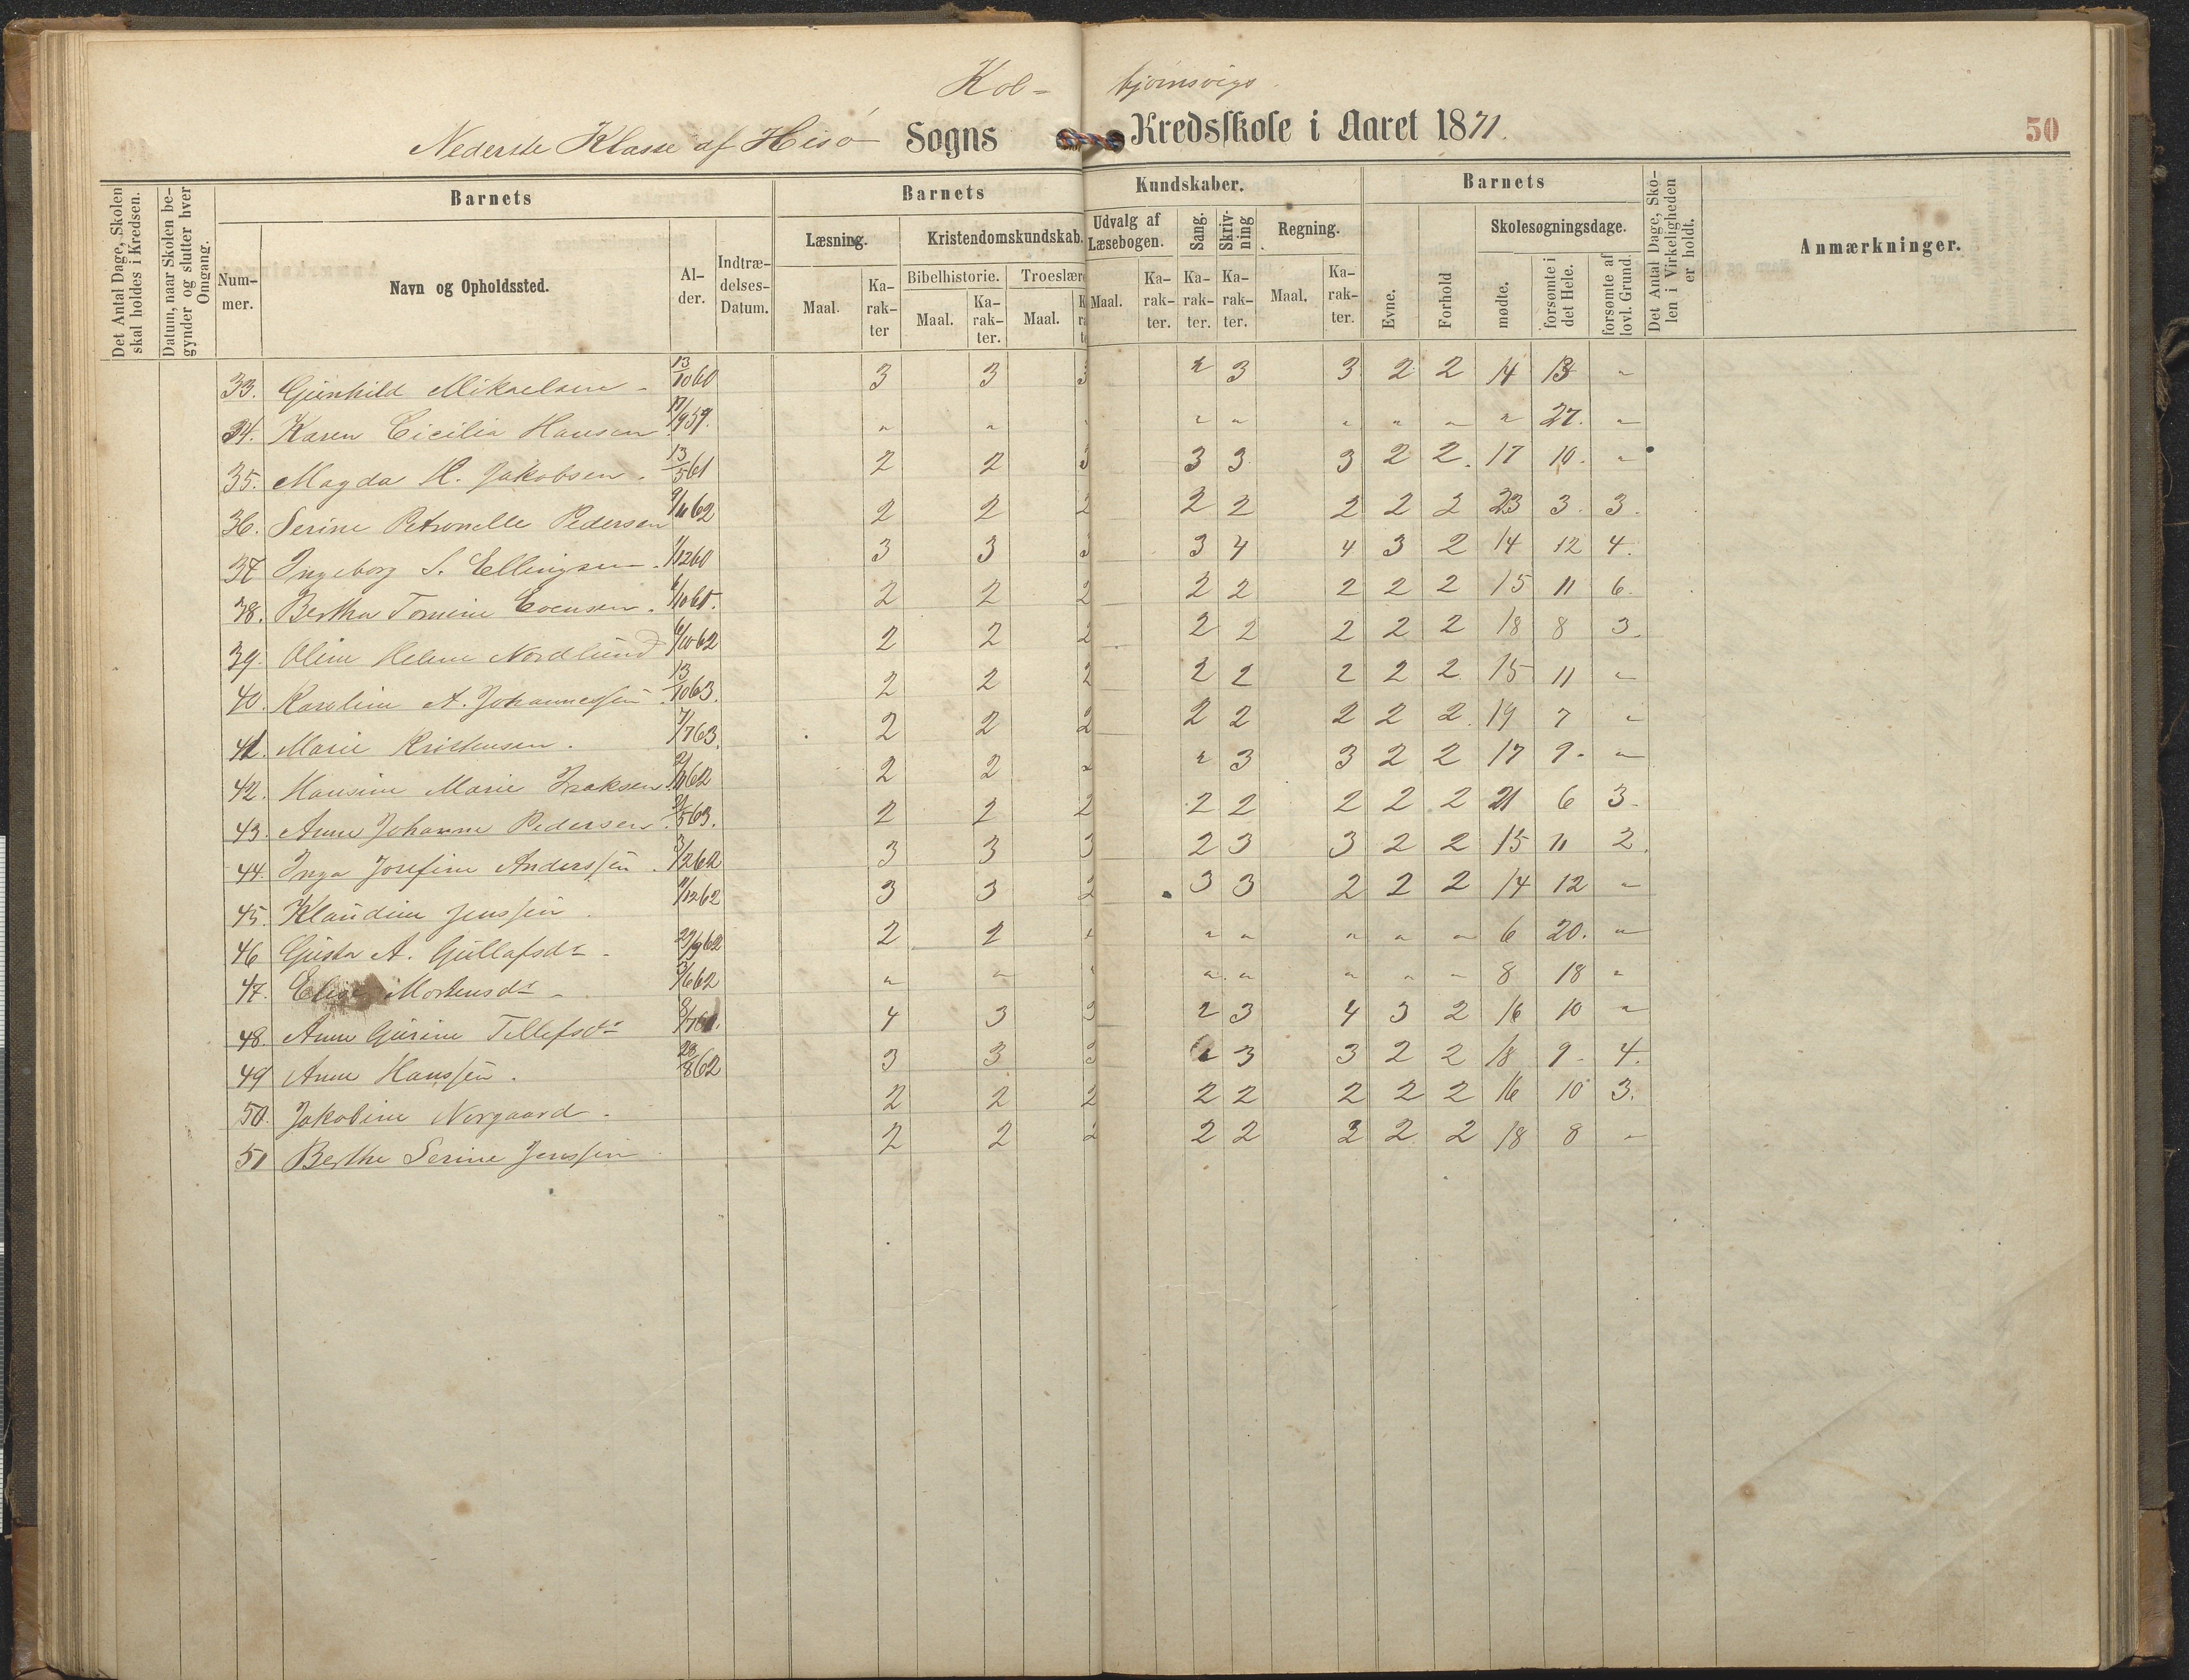 Kol- bjørnsvigs
Nederste Klasse af Hisø Sogns Kredsskole i Aaret 1871.
50
Det Antal Dage, Skolen skal holdes i Kredsen.
Datum, naar Skolen begynder og slutter hver Omgang.
Barnets
Nummer.
Navn og Opholdssted.
Alder.
Indtrædelses-Datum.
Barnets Kundskaber.
Læsning.
Maal. Karakter
Kristendomskundskab.
Bibelhistorie. Troeslære
Maal. Karakter. Maal.
Udvalg af Læsebogen.
Maal. Karakter.
Sang. Karakter.
Skrivning Karakter.
Regning.
Maal. Karakter.
Barnets
Evne.
Forhold
Skolesøgningsdage.
mødte.
forsømte i det Hele.
forsømte af lovl. Grund.
Det Antal Dage, Skolen i Virkeligheden er holdt.
Anmærkninger.
33. Gunhild Mikaelsen - 13/10 60 3 3 3 " 3 3 2 2 14 13 "
34. Karen Cicilia Hansen 17/9 59. " " " " " " " " " 27. "
35. Magda K. Jakobsen. 13/5 61 2 2 3 3 3 3 2 2. 17 10. "
36. Serine Petronelle Pedersen 9/11 62 2 2 2 2 2 2 2 2 23 3. 3.
37 Ingeborg S. Ellingsen. 1/12 60 3 3 3 3 4 4 3 2 14 12 4.
38. Bertha Tomine Evensen. 6/10 61. 2 2 2 2 2 2 2 2 15 11 6.
39. Oline Helene Nordlund 6/10 62 2 2 2 2 2 2 2 2 18 8 3.
40. Karoline A. Johannessen. 13/10 63. 2 2 2 2 2 2 2 2 15 11 "
41. Marie Kristensen. 7/7 63. 2 2 2 2 2 2 2 2. 19 7 "
42. Hansine Marie Isaksen. 2/11 62 2 2 " " 3 3 2 2 17 9. "
43. Anne Johanne Pedersen. 21/5 63. 2 2 2 2 2 2 2 2 21 6 3.
44. Inga Josefine Anderssen. 3/12 62 3 3 3 2 3 3 2 2 15 11 2.
45. Klaudine Jenssen. 11/12 62 3 3 2 3 3 2 2 2 14 12 "
46 Gusta A. Gullafsdr. 27/9 62 2 2 " " " " " " 6 20. "
47. Elise Mortensdr 3/6 62 " " " " " " " " 8 18 "
48. Anne Gurine Tellefsdr 4 3 3 2 3 4 3 2 16 10 "
49 Anne Hanssen. 28/8 62 3 3 3 " 3 3 2 2 18 9. 4.
50. Jakobine Norgaard. 2 2 2 2 2 2 2 2 16 10 3.
51 Berthe Serine Jenssen 2 2 2 2 2 2 2 2 18 8 "